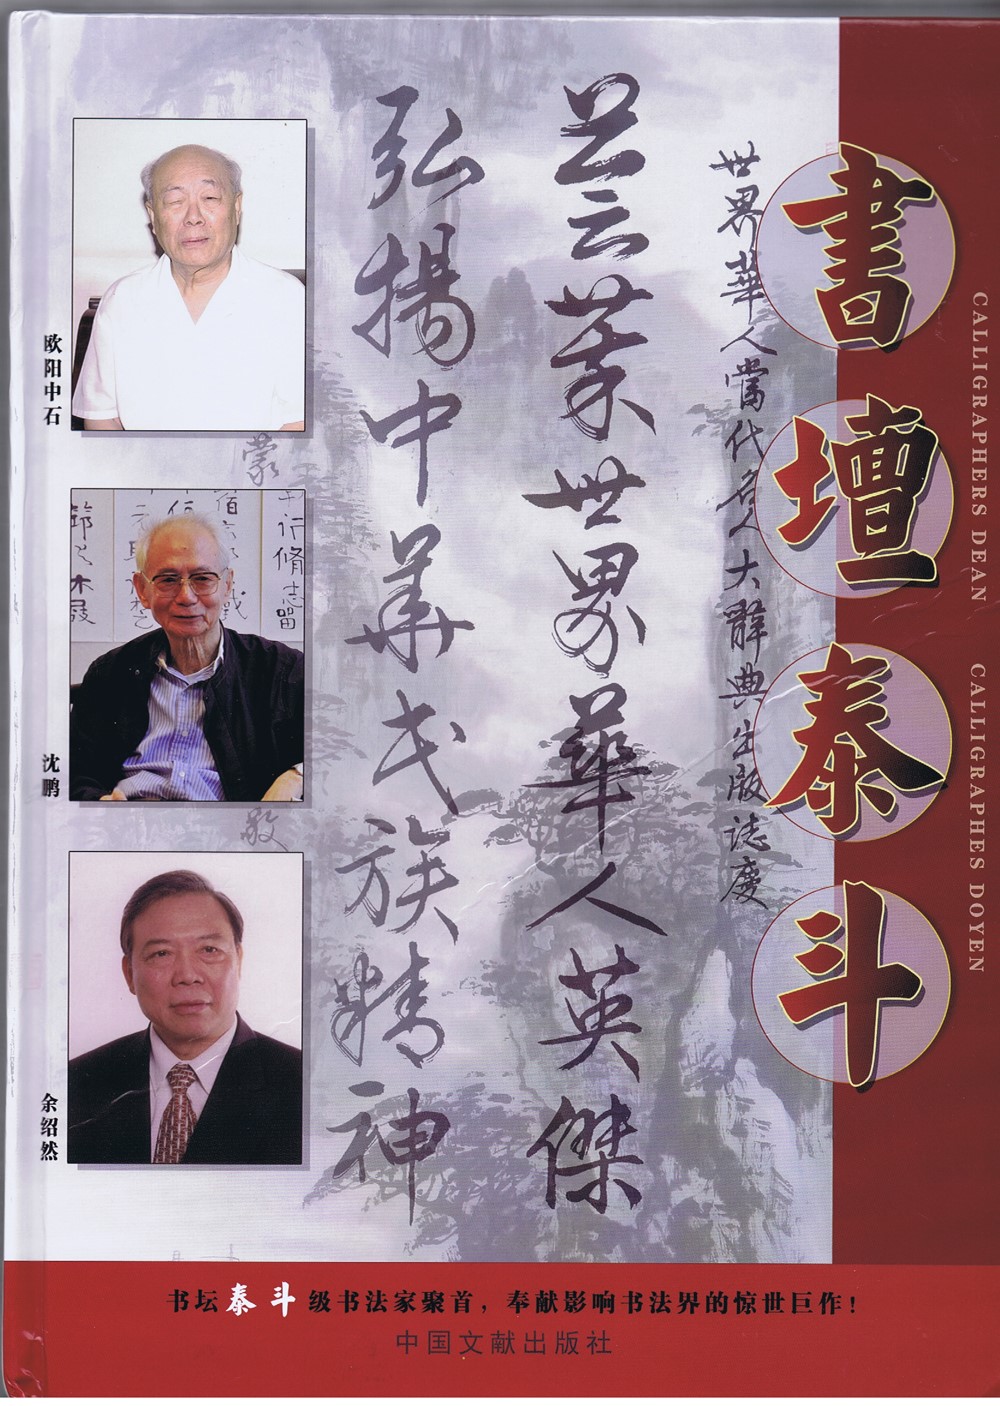 書壇泰斗
CALLIGRAPHERS DEAN
CALLIGRAPHES DOYEN
世界華人當代名人大辭典出版誌慶
世界華人英傑
弘揚中華民族精神
欧阳中石
沈鹏
余绍然
书坛泰斗级书法家聚首，奉献影响书法界的惊世巨作！
中国文献出版社